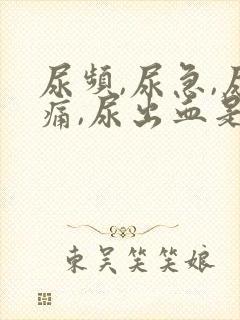 尿頻,尿急,尿
痛,尿出血是
東吴笑笑娘